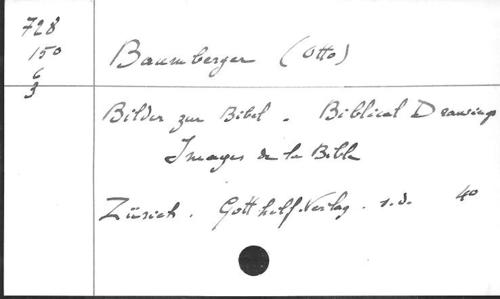 728
150
6
3
Baumberger (Otto)
Bilder zur Bibel. Biblical Drawings
Images de la Bible
Zürich. Gotthelf-Verlag. s.d. 4o